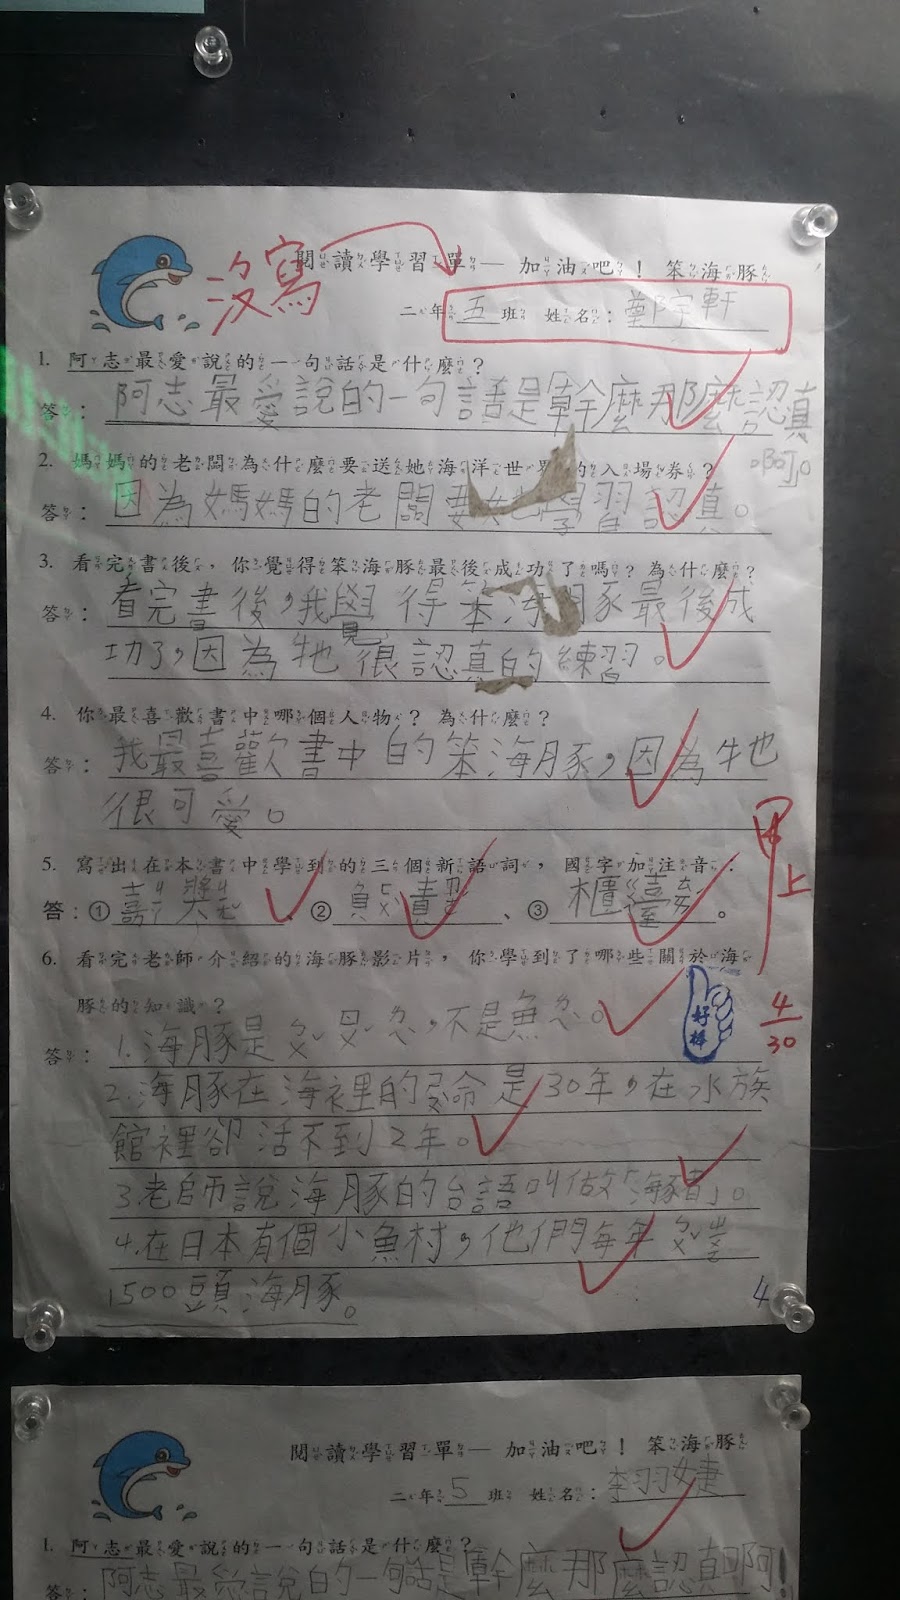 沒寫
閱讀學習單— 加油吧！笨海豚
二年五班 姓名：鄭宇軒
1. 阿志最愛說的一句話是什麼？
答：阿志最愛說的一句話是「幹麼那麼認真
啊」。
2. 媽媽的老闆為什麼要送她海洋世界的入場券？
答：因為媽媽的老闆要她學習認真。
3. 看完書後，你覺得笨海豚最後成功了嗎？為什麼？
答：看完書後，我覺得笨海豚最後成
功了，因為牠很認真的練習。
4. 你最喜歡書中哪個人物？為什麼？
答：我最喜歡書中的笨海豚，因為牠
很可愛。
5. 寫出在本書中學到的三個新語詞，國字加注音：
答：① 嘉獎、② 負責、③ 櫃臺。
甲上
6. 看完老師介紹的海豚影片，你學到了哪些關於海
豚的知識？
好棒
4/30
答：1.海豚是ㄅㄨˇㄖㄨˇㄌㄟˋ，不是魚ㄌㄟˋ。
2.海豚在海裡的壽命是30年，在水族
館裡卻活不到2年。
3.老師說海豚的台語叫做「海豬」。
4.在日本有個小魚村，他們每年
1500頭海豚。
4
閱讀學習單— 加油吧！笨海豚
二年5班 姓名：李羽婕
1. 阿志最愛說的一句話是什麼？
答：阿志最愛說的一句話是「幹麼那麼認真啊！